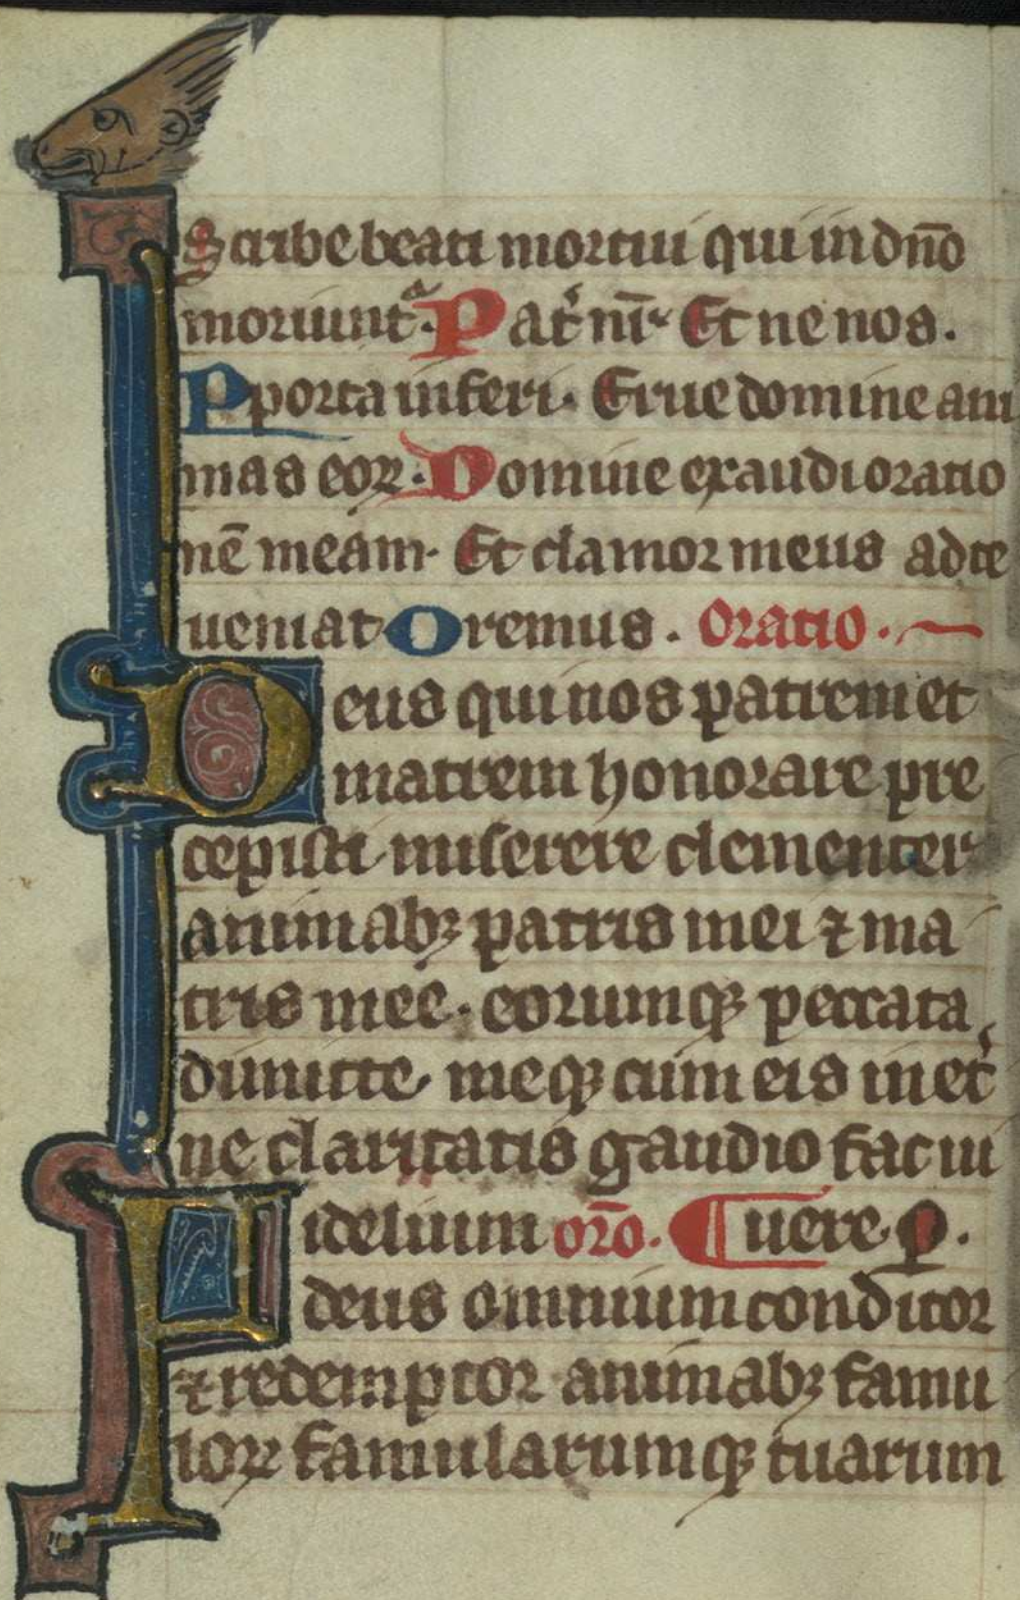 Scribe beati mortui qui in dn̄o
moriuntᷓ. Pat̾ nr̄. Et ne nos.
P porta inferi. Erue domine ani
mas eoꝝ. Domine exaudi oratio
nē meam. Et clamor meus ad te
ueniat Oremus. Oratio.
Deus qui nos patrem et
matrem honorare pre
cepisti miserere clementer
animabꝫ patris mei ⁊ ma
tris mee. eorumqꝫ peccata
dimitte. meqꝫ cum eis in et̾
ne claritatis gaudio fac ui
Fidelium oro̅. ¶ uere. ꝑ.
deus omnium conditor
⁊ redemptor animabꝫ famu
loꝝ famularumqꝫ tuarum